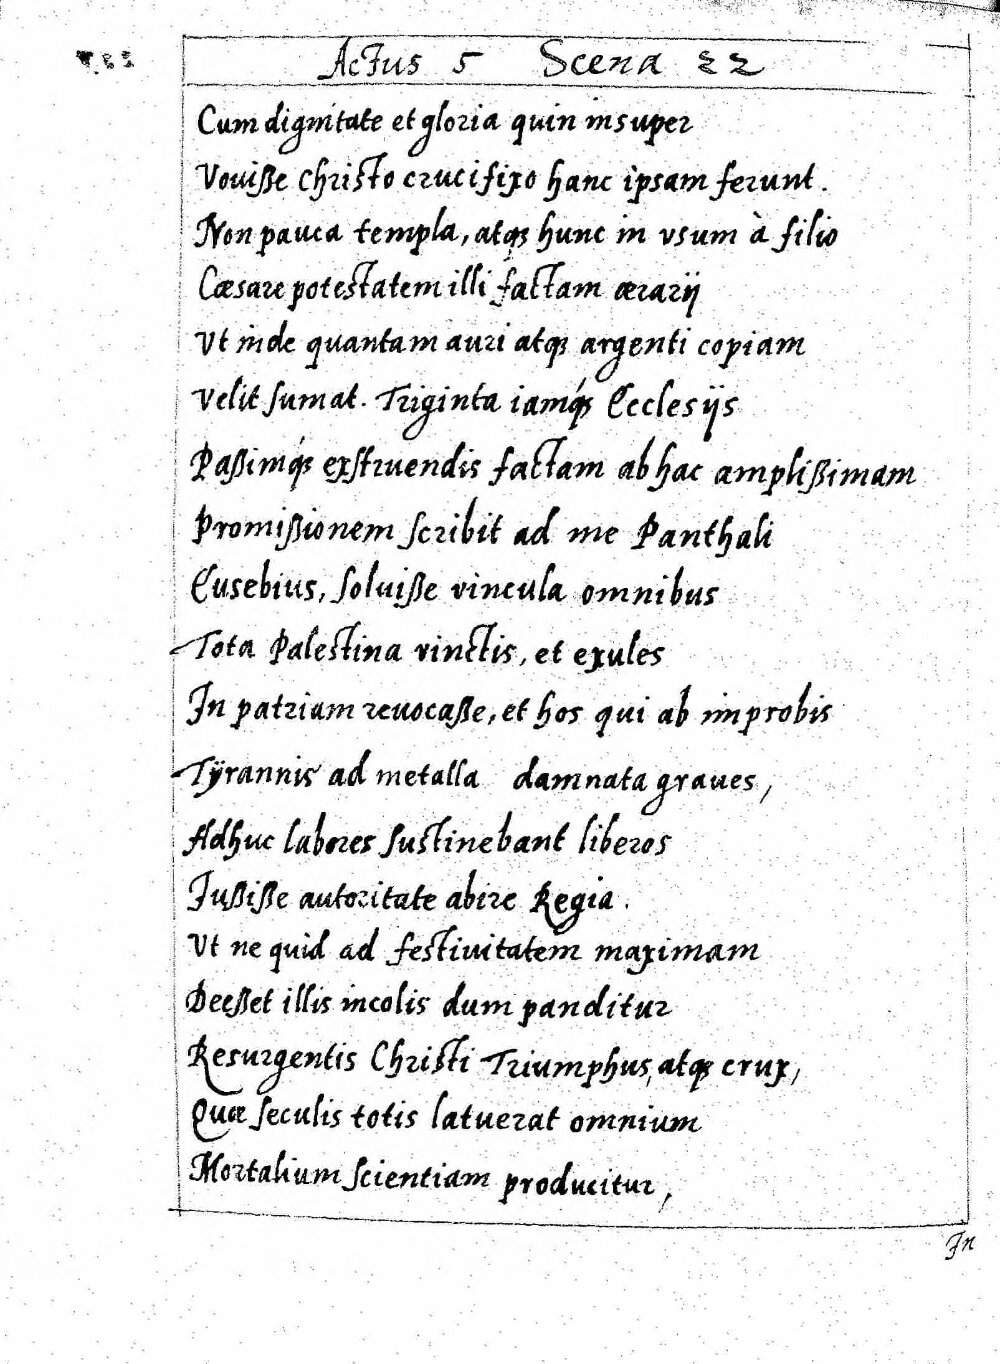 Actus 5 Scena 22
Cum dignitate et gloria quin insuper
Vouiße Christo crucifixo hanc ipsam ferunt.
Non pauca templa, atqꝫ hunc in vsum à filio
Cæsare potestatem illi factam ærarij
Vt inde quantam auri atqꝫ argenti copiam
Velit ſumat. Triginta iamq́ꝫ Ecclesijs
Paßimq́ꝫ exſtruendis factam ab hac amplißimam
Promißionem ſcribit ad me Panthali
Eusebius, ſoluiße vincula omnibus
Tota Palestina vinctis, et exules
In patriam reuocaße, et hos qui ab improbis
Tÿrannis ad metalla damnata graues,
Adhuc labores ſustinebant liberos
Iußiße autoritate abire Regia.
Vt ne quid ad festiuitatem maximam
Deeßet illis incolis dum panditur
Resurgentis Christi Triumphus, atqꝫ crux,
Quæ ſeculis totis latuerat omnium
Mortalium ſcientiam producitur,
In